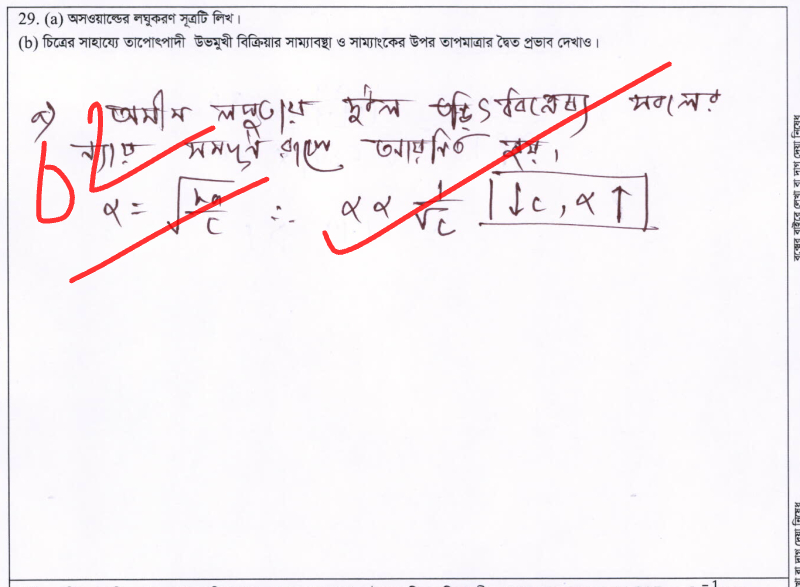 29. (a) অসওয়াল্ডের লঘুকরণ সূত্রটি লিখ।
(b) চিত্রের সাহায্যে তাপোৎপাদী উভমুখী বিক্রিয়ার সাম্যাবস্থা ও সাম্যাংকের উপর তাপমাত্রার দ্বৈত প্রভাব দেখাও।
a) অসীম লঘুতায় দুর্বল তড়িৎ বিশ্লেষ্য সবলের
ন্যায় সমপূর্ন রূপে আয়নিত হয়।
α = √(Ka/C) ∴ α ∝ 1/√C ↓C, α↑
b2
বক্সের বাইরে লেখা বা দাগ দেয়া নিষেধ
বা দাগ দেয়া নিষেধ